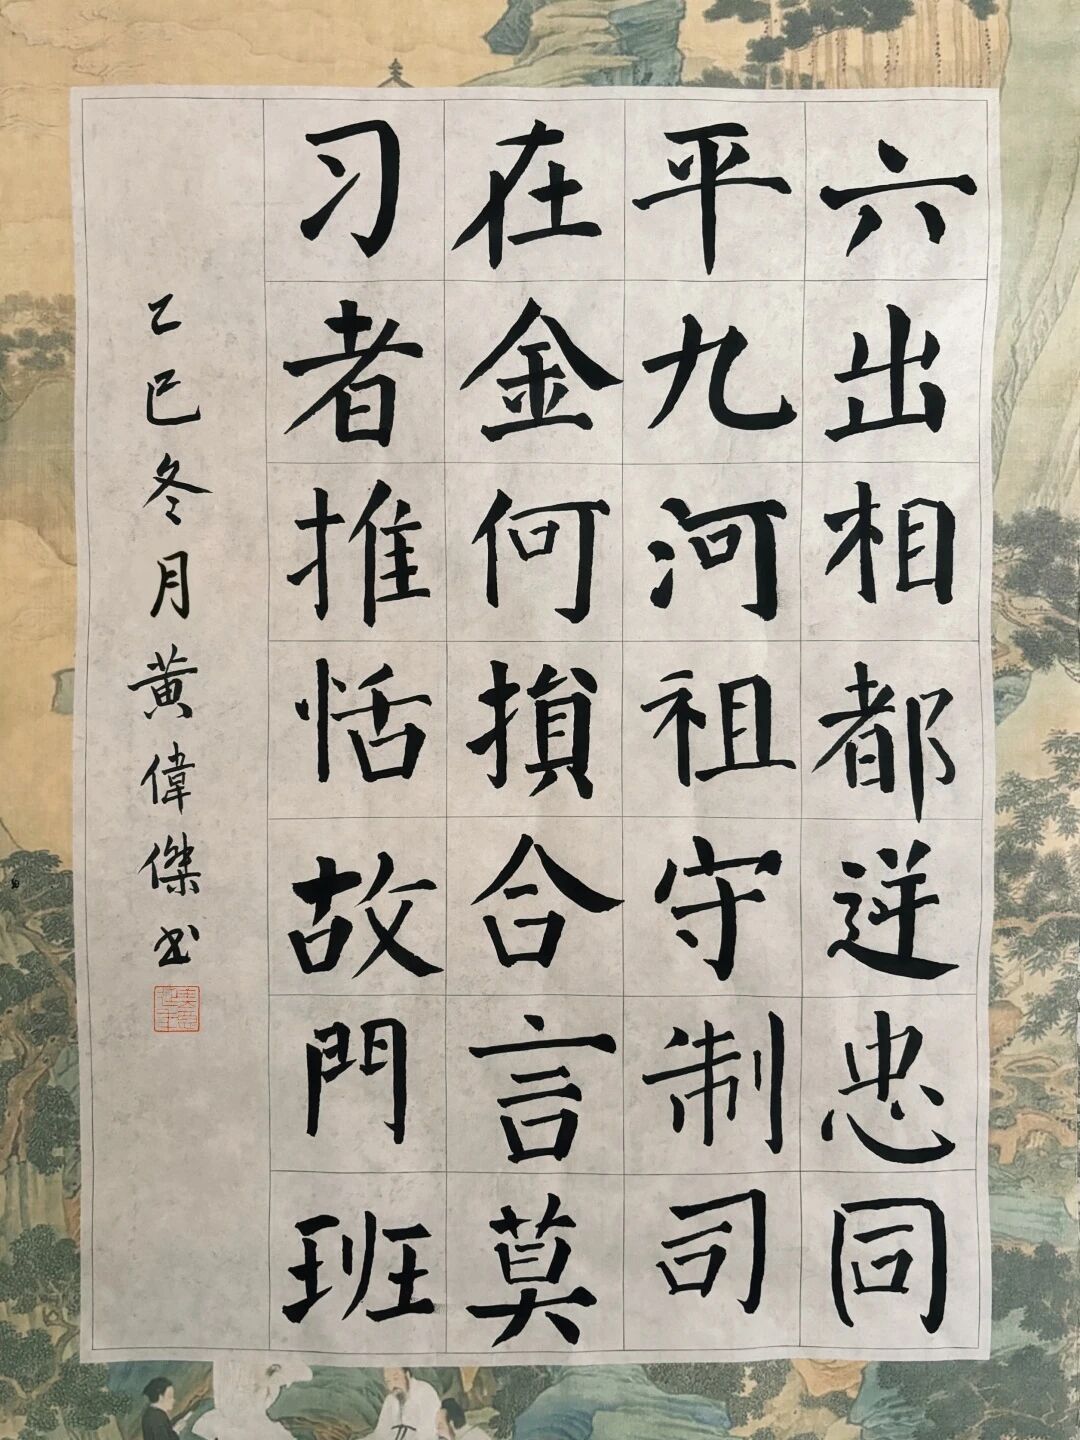 六出相都逆忠同
平九河祖守制司
在金何損合言莫
习者推恬故門班
乙巳冬月黄偉傑书